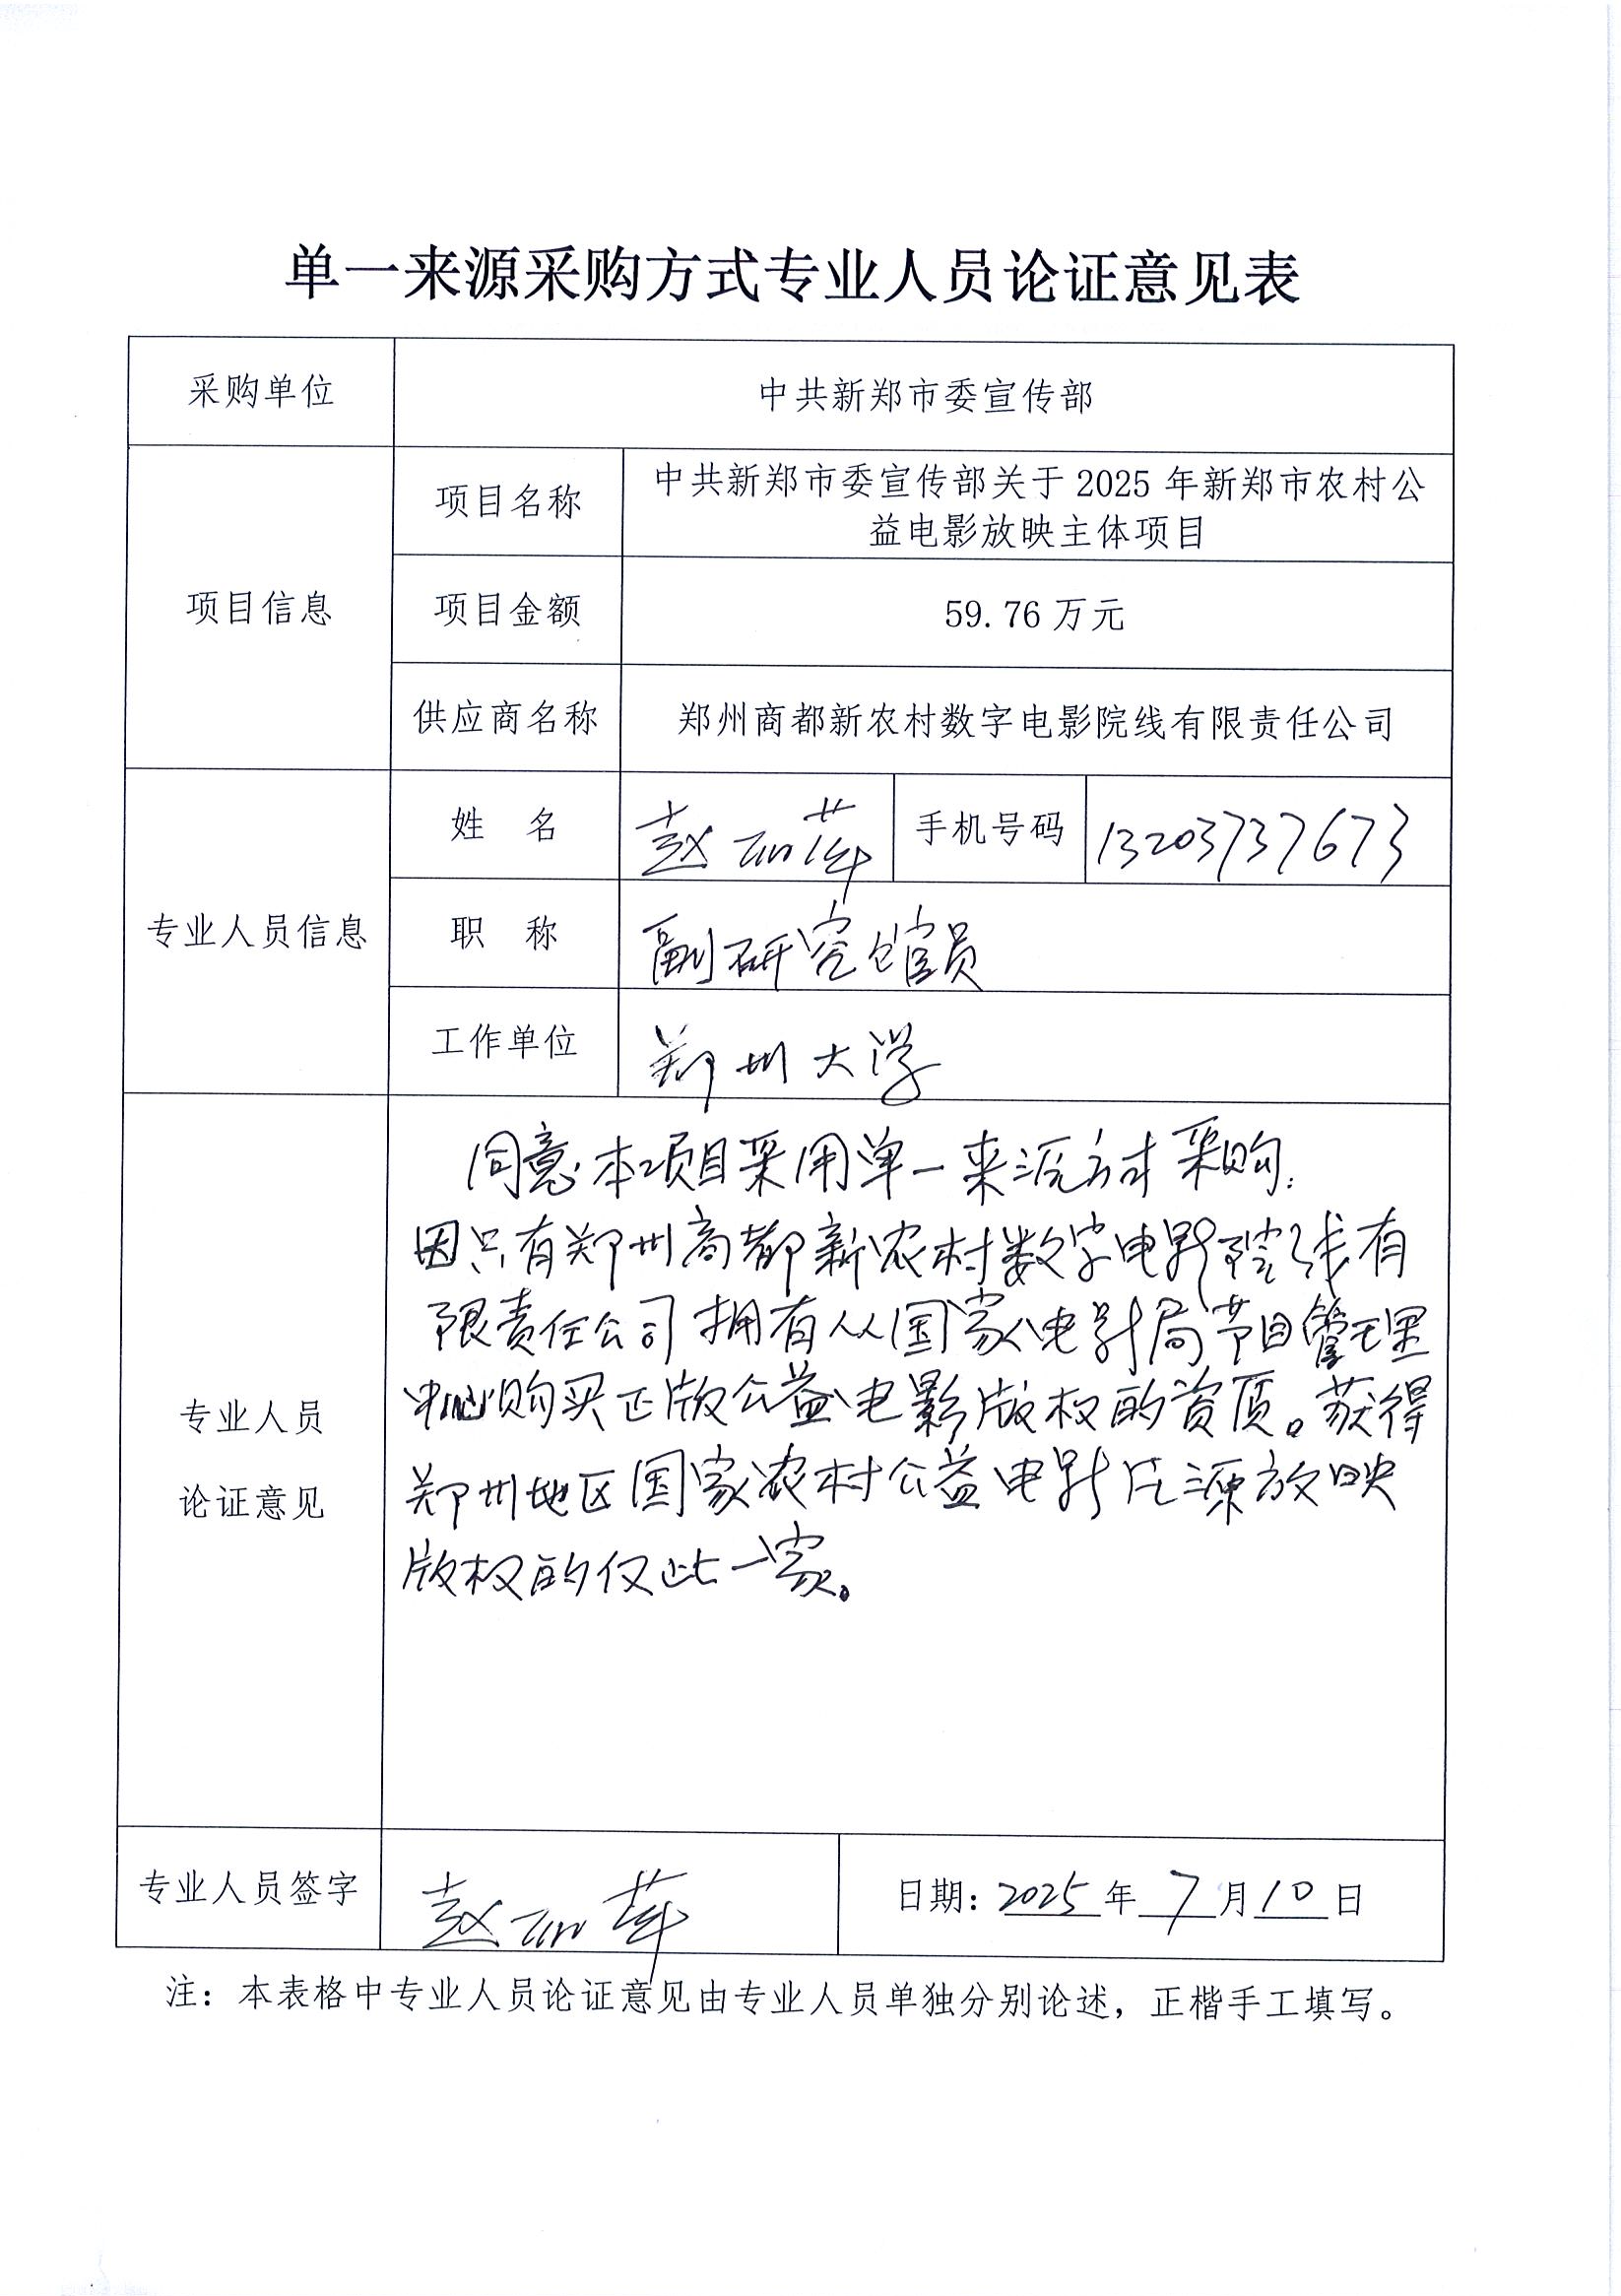 单一来源采购方式专业人员论证意见表
采购单位
中共新郑市委宣传部
项目信息
项目名称
中共新郑市委宣传部关于 2025 年新郑市农村公
益电影放映主体项目
项目金额
59.76 万元
供应商名称
郑州商都新农村数字电影院线有限责任公司
专业人员信息
姓 名
赵丽萍
手机号码
13203737673
职 称
副研究馆员
工作单位
郑州大学
专业人员
论证意见
同意本项目采用单一来源方式采购.
因只有郑州商都新农村数字电影院线有
限责任公司拥有从国家电影局节目管理
中心购买正版公益电影版权的资质。获得
郑州地区国家农村公益电影片源放映
版权的仅此一家。
专业人员签字
赵丽萍
日期：2025 年 7 月 10 日
注：本表格中专业人员论证意见由专业人员单独分别论述，正楷手工填写。